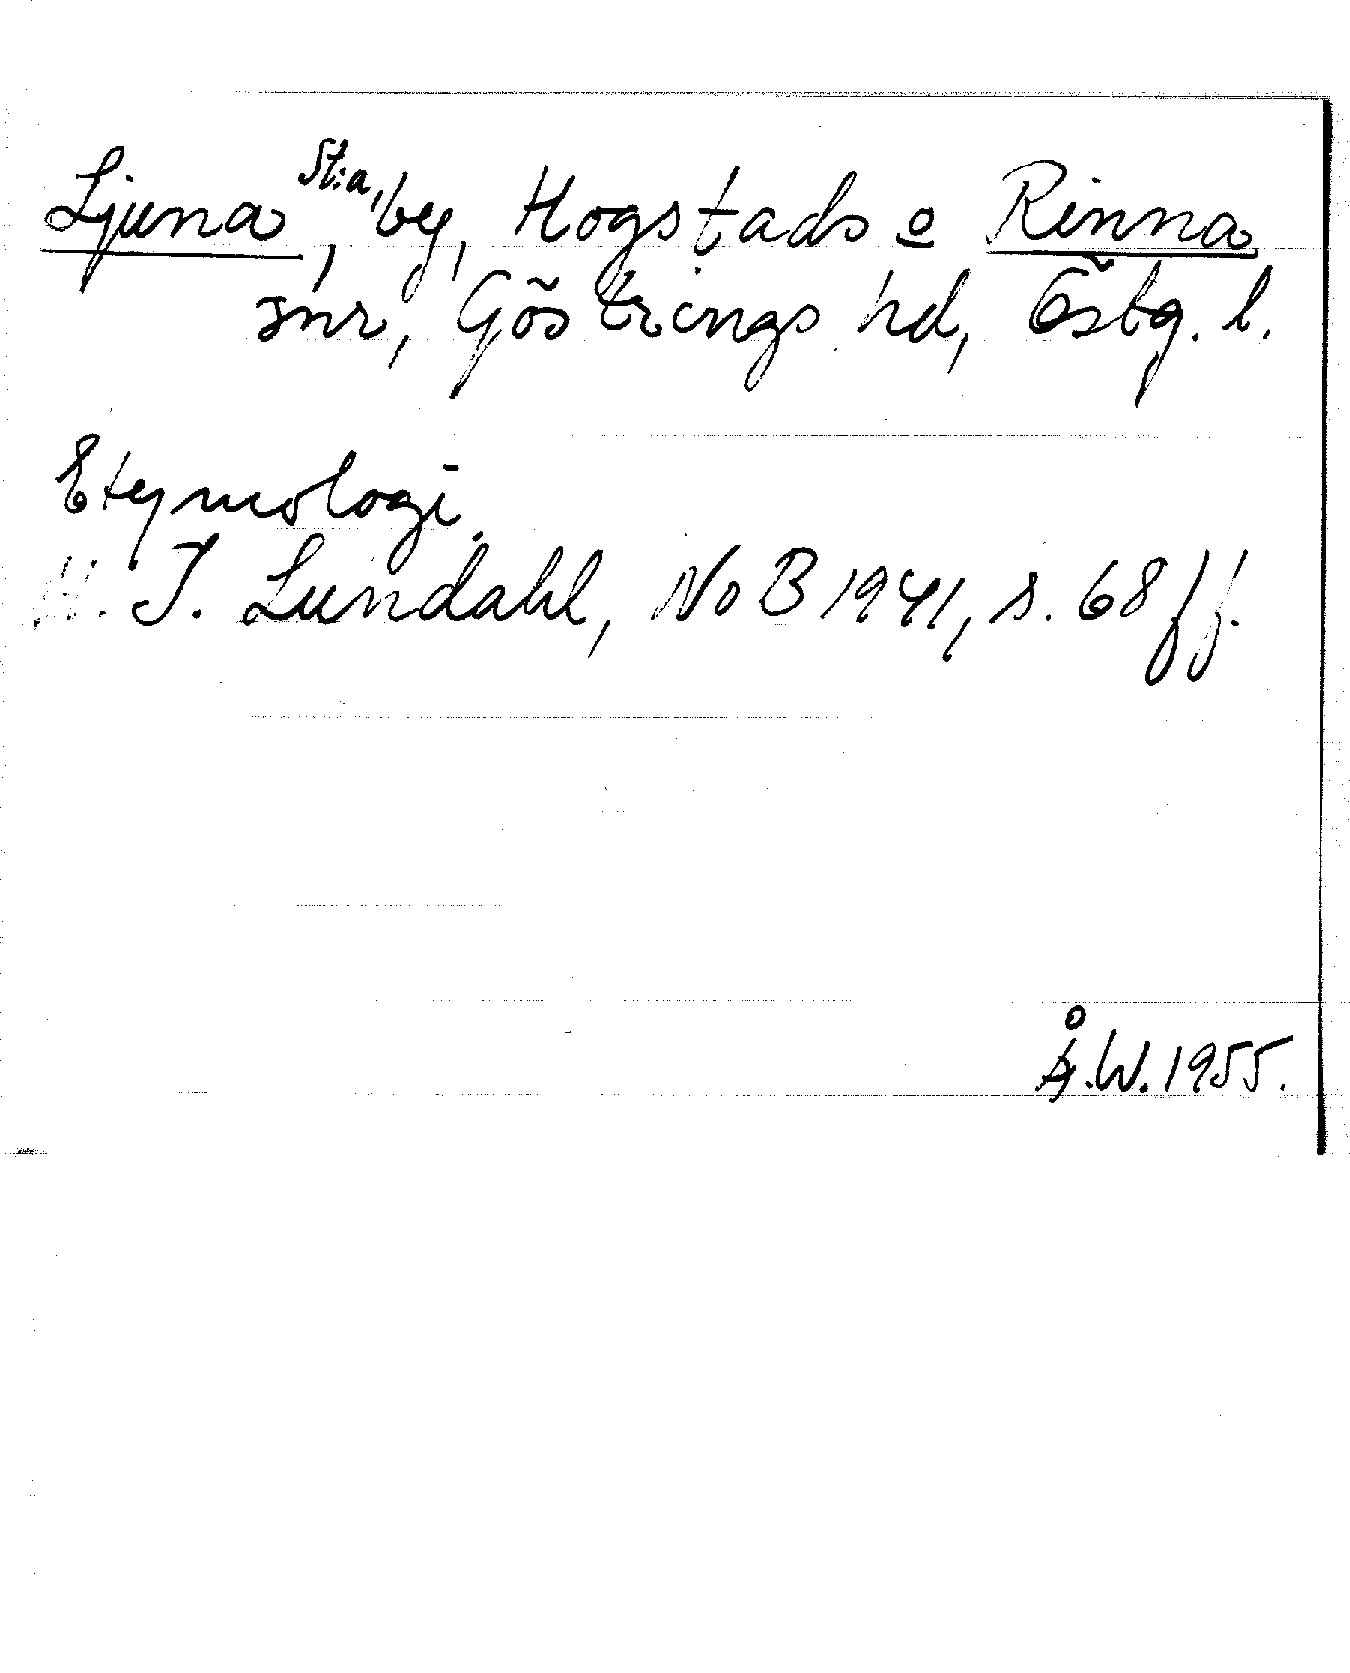 Ljuna St:a, by, Hogstads o Rinna
snr, Göstrings hd, Östg. l.
Etymologi.
I. Lundahl, NoB 1941, s. 68 ff.
Å.W. 1955.